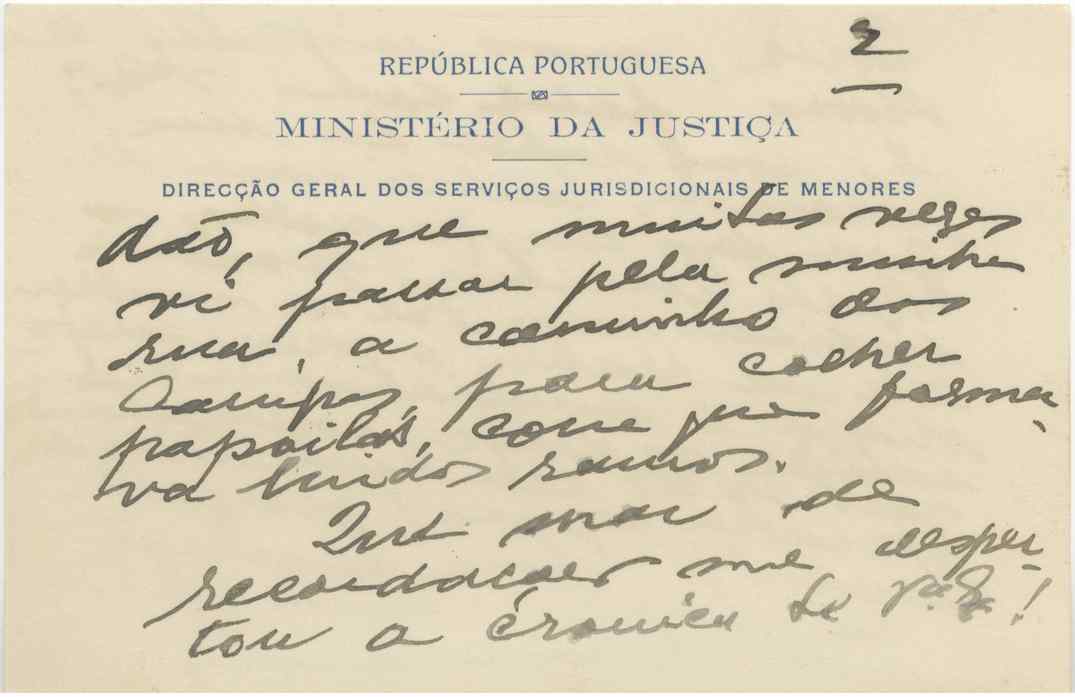 2
REPÚBLICA PORTUGUESA
MINISTÉRIO DA JUSTIÇA
DIRECÇÃO GERAL DOS SERVIÇOS JURISDICIONAIS DE MENORES
dão, que muitas vezes
vi passar pela minha
rua, a caminho dos
Campos, para colher
papoilas, com que forma-
va lindos ramos.
Que mar de
recordações me desper-
tou a crónica de V. Ex.ª!